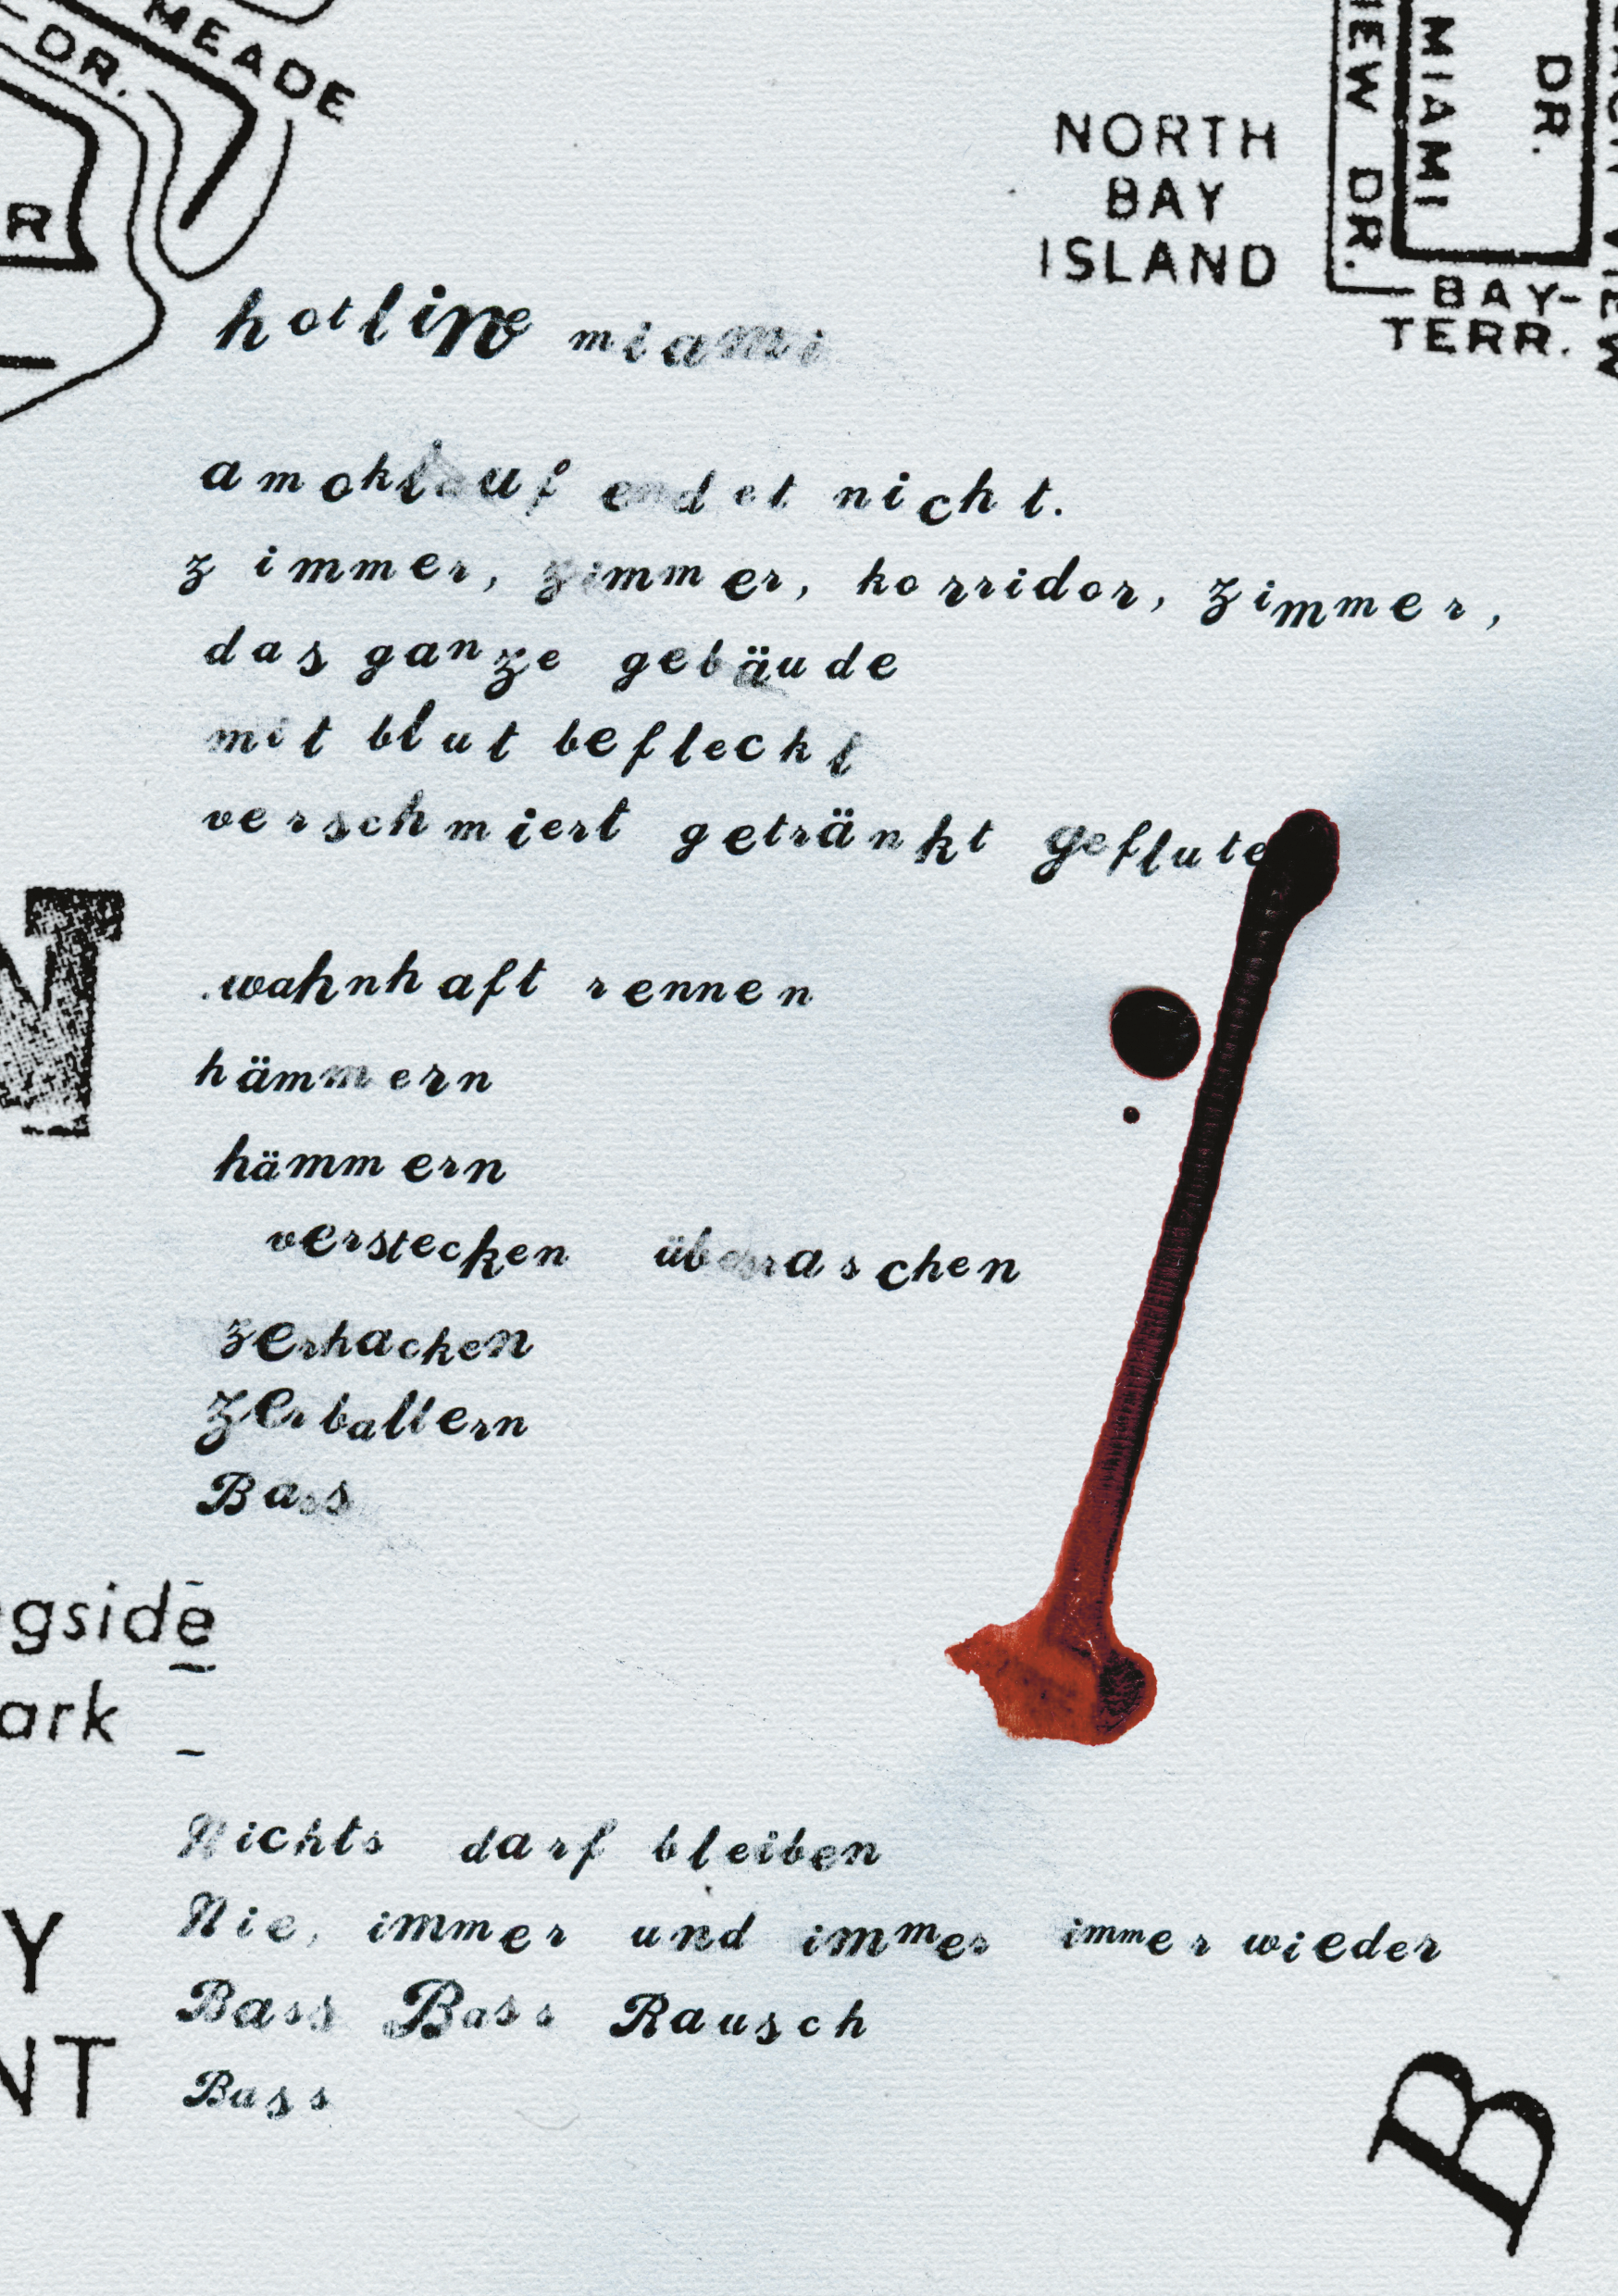 MEADE
DR.
R
NORTH
BAY
ISLAND
MIAMI
DR.
DR.
BAY-
TERR.
hotline miami
amoklauf endet nicht.
zimmer, zimmer, korridor, zimmer,
das ganze gebäude
mit blut befleckt
verschmiert getränkt geflute
wahnhaft rennen
hämmern
hämmern
verstecken überraschen
zerhacken
zerballern
Bass
gside
ark
Nichts darf bleiben
Nie, immer und immer immer wieder
Bass Bass Rausch
Bass
Y
NT
B